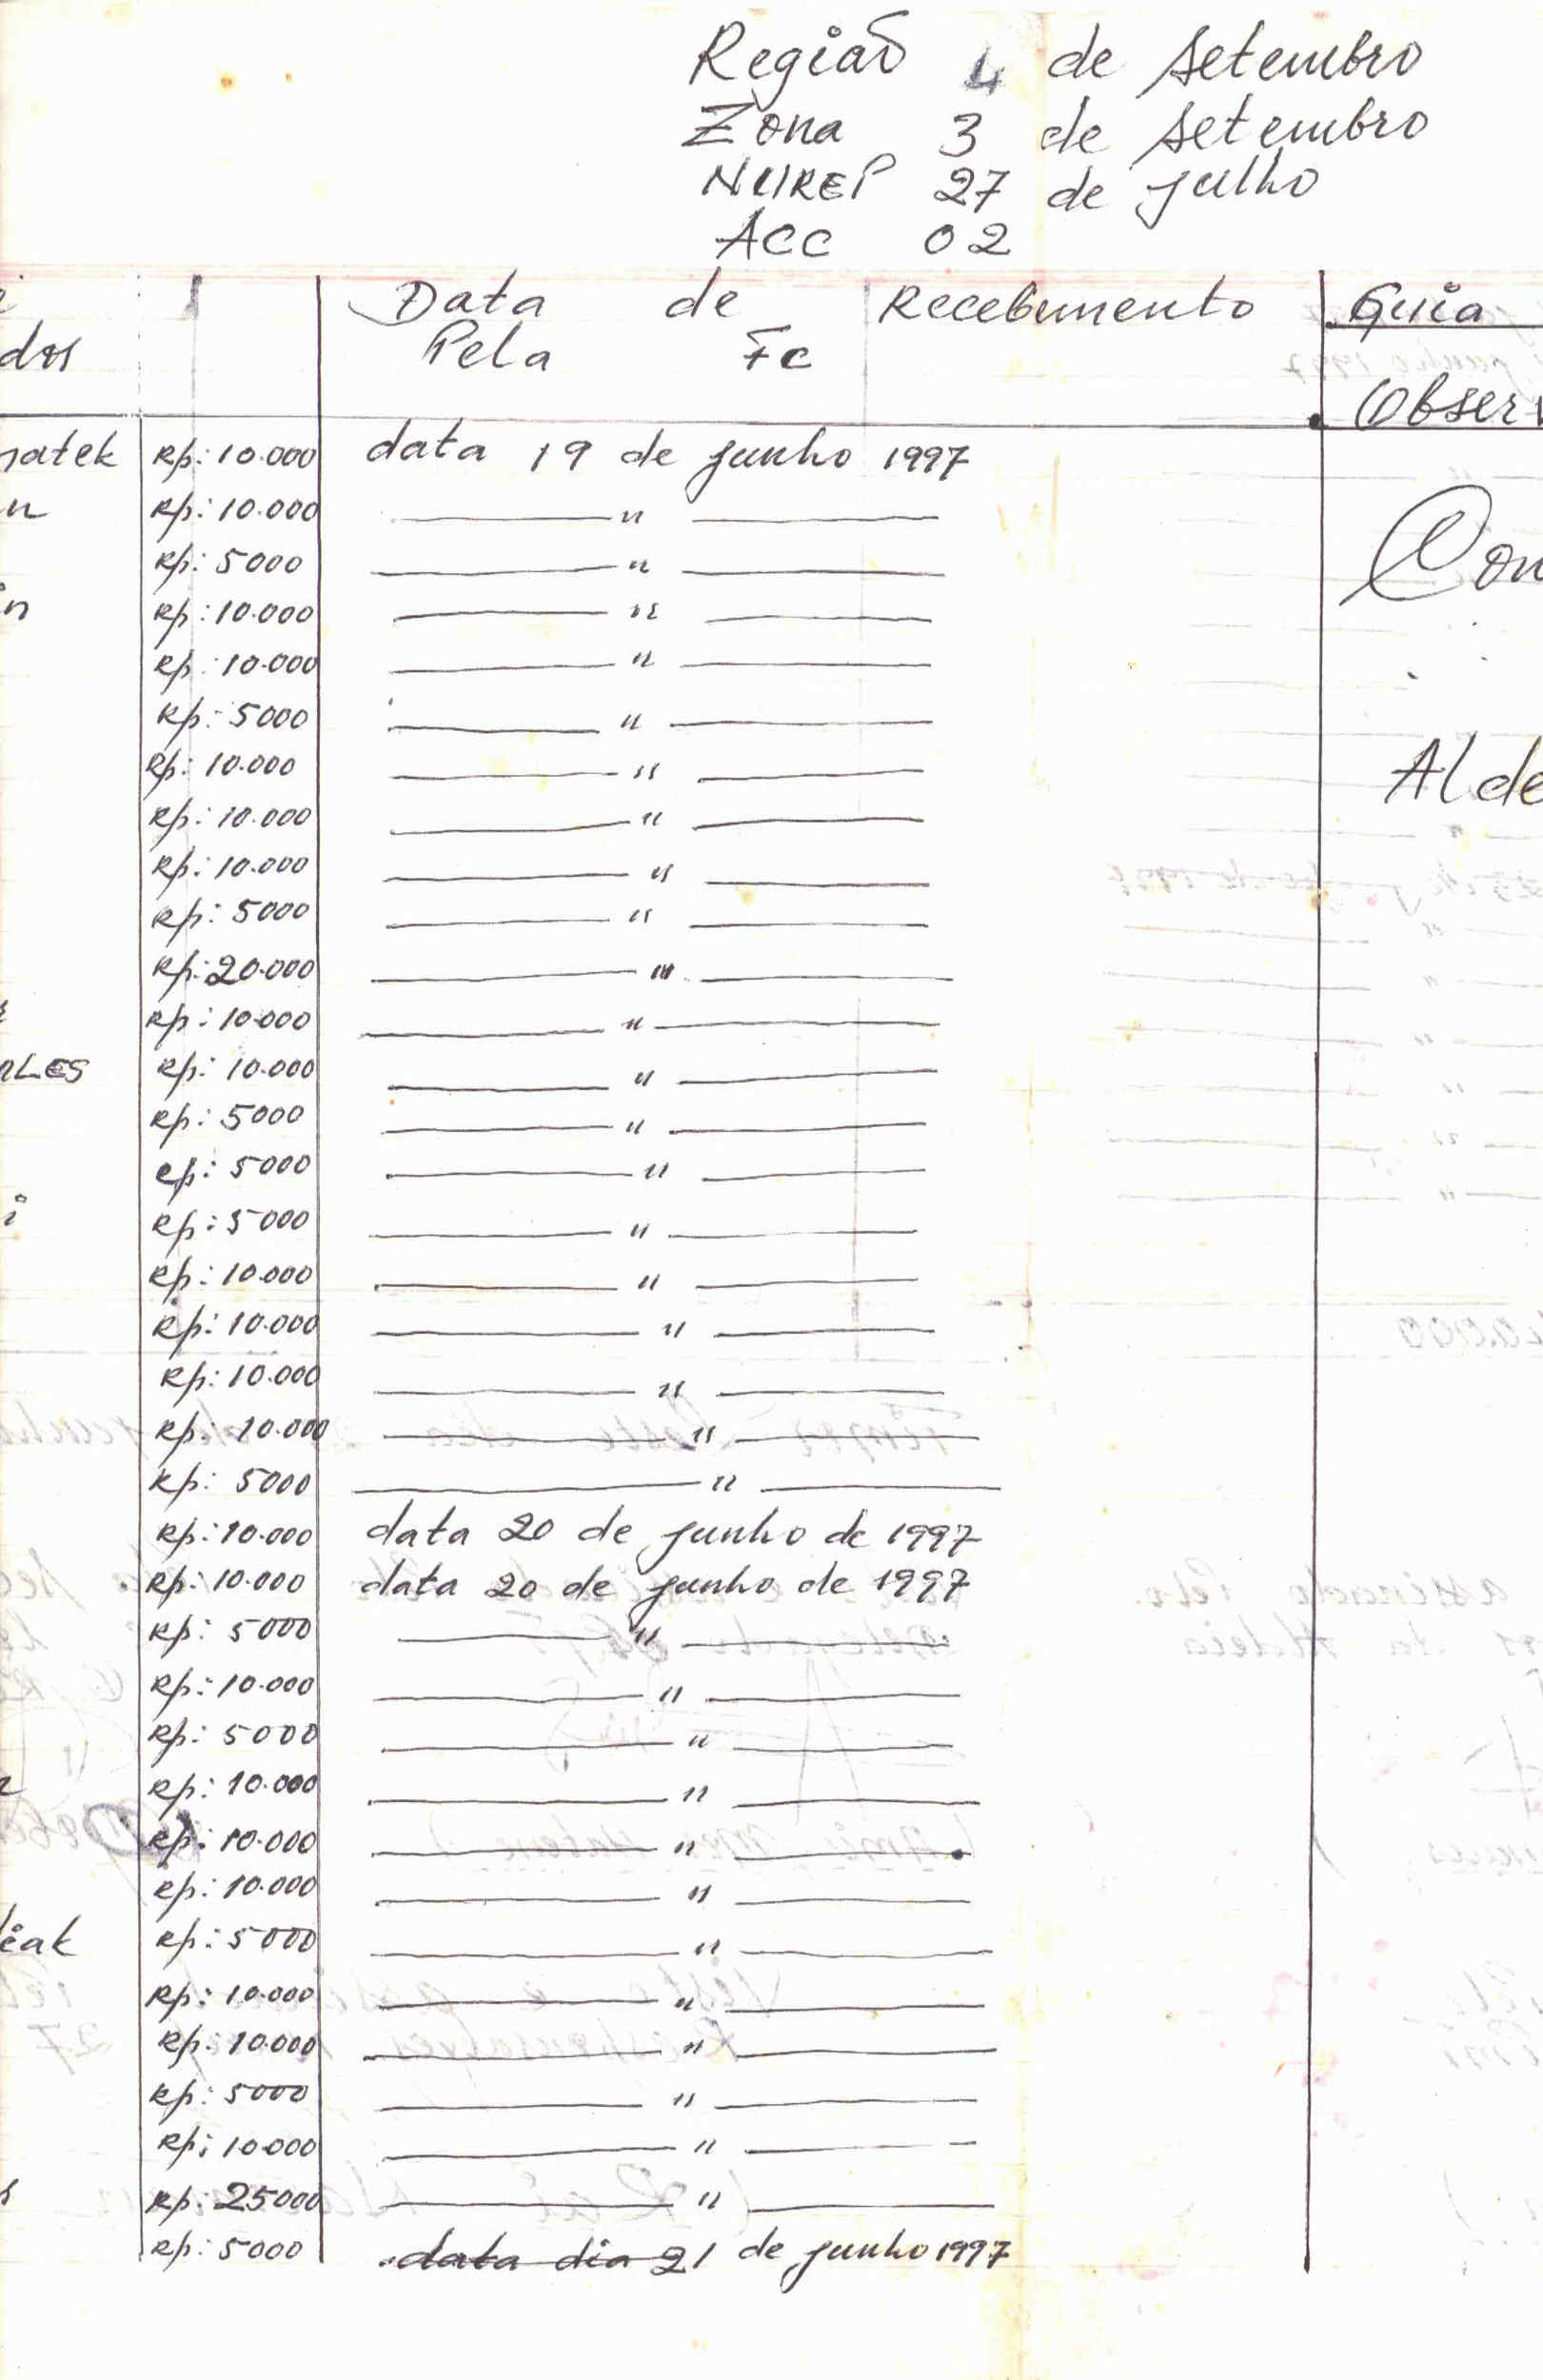 Região 4 de setembro
Zona 3 de setembro
NUREP 27 de Julho
ACC 02
Data de Recebimento Guia
dos Pela Fc
Observ
natek Rp: 10.000 data 19 de junho 1997
n Rp: 10.000 "
Rp: 5000 "
in Rp: 10.000 "
Rp: 10.000 "
Rp: 5000 "
Rp: 10.000 "
Rp: 10.000 "
Rp: 10.000 "
Rp: 5000 "
Rp: 20.000 "
Rp: 10.000 "
ALES Rp: 10.000 "
Rp: 5000 "
Rp: 5000 "
i Rp: 5000 "
Rp: 10.000 "
Rp: 10.000 "
Rp: 10.000 "
Rp: 10.000 "
Rp: 5000 "
Rp: 10.000 data 20 de junho de 1997
Rp: 10.000 data 20 de junho de 1997
Rp: 5000 "
Rp: 10.000 "
Rp: 5000 "
Rp: 10.000 "
Rp: 10.000 "
Rp: 10.000 "
eak Rp: 5000 "
Rp: 10.000 "
Rp: 10.000 "
Rp: 5000 "
Rp: 10.000 "
Rp: 25000 "
Rp: 5000 data dia 21 de junho 1997
Con
Alde